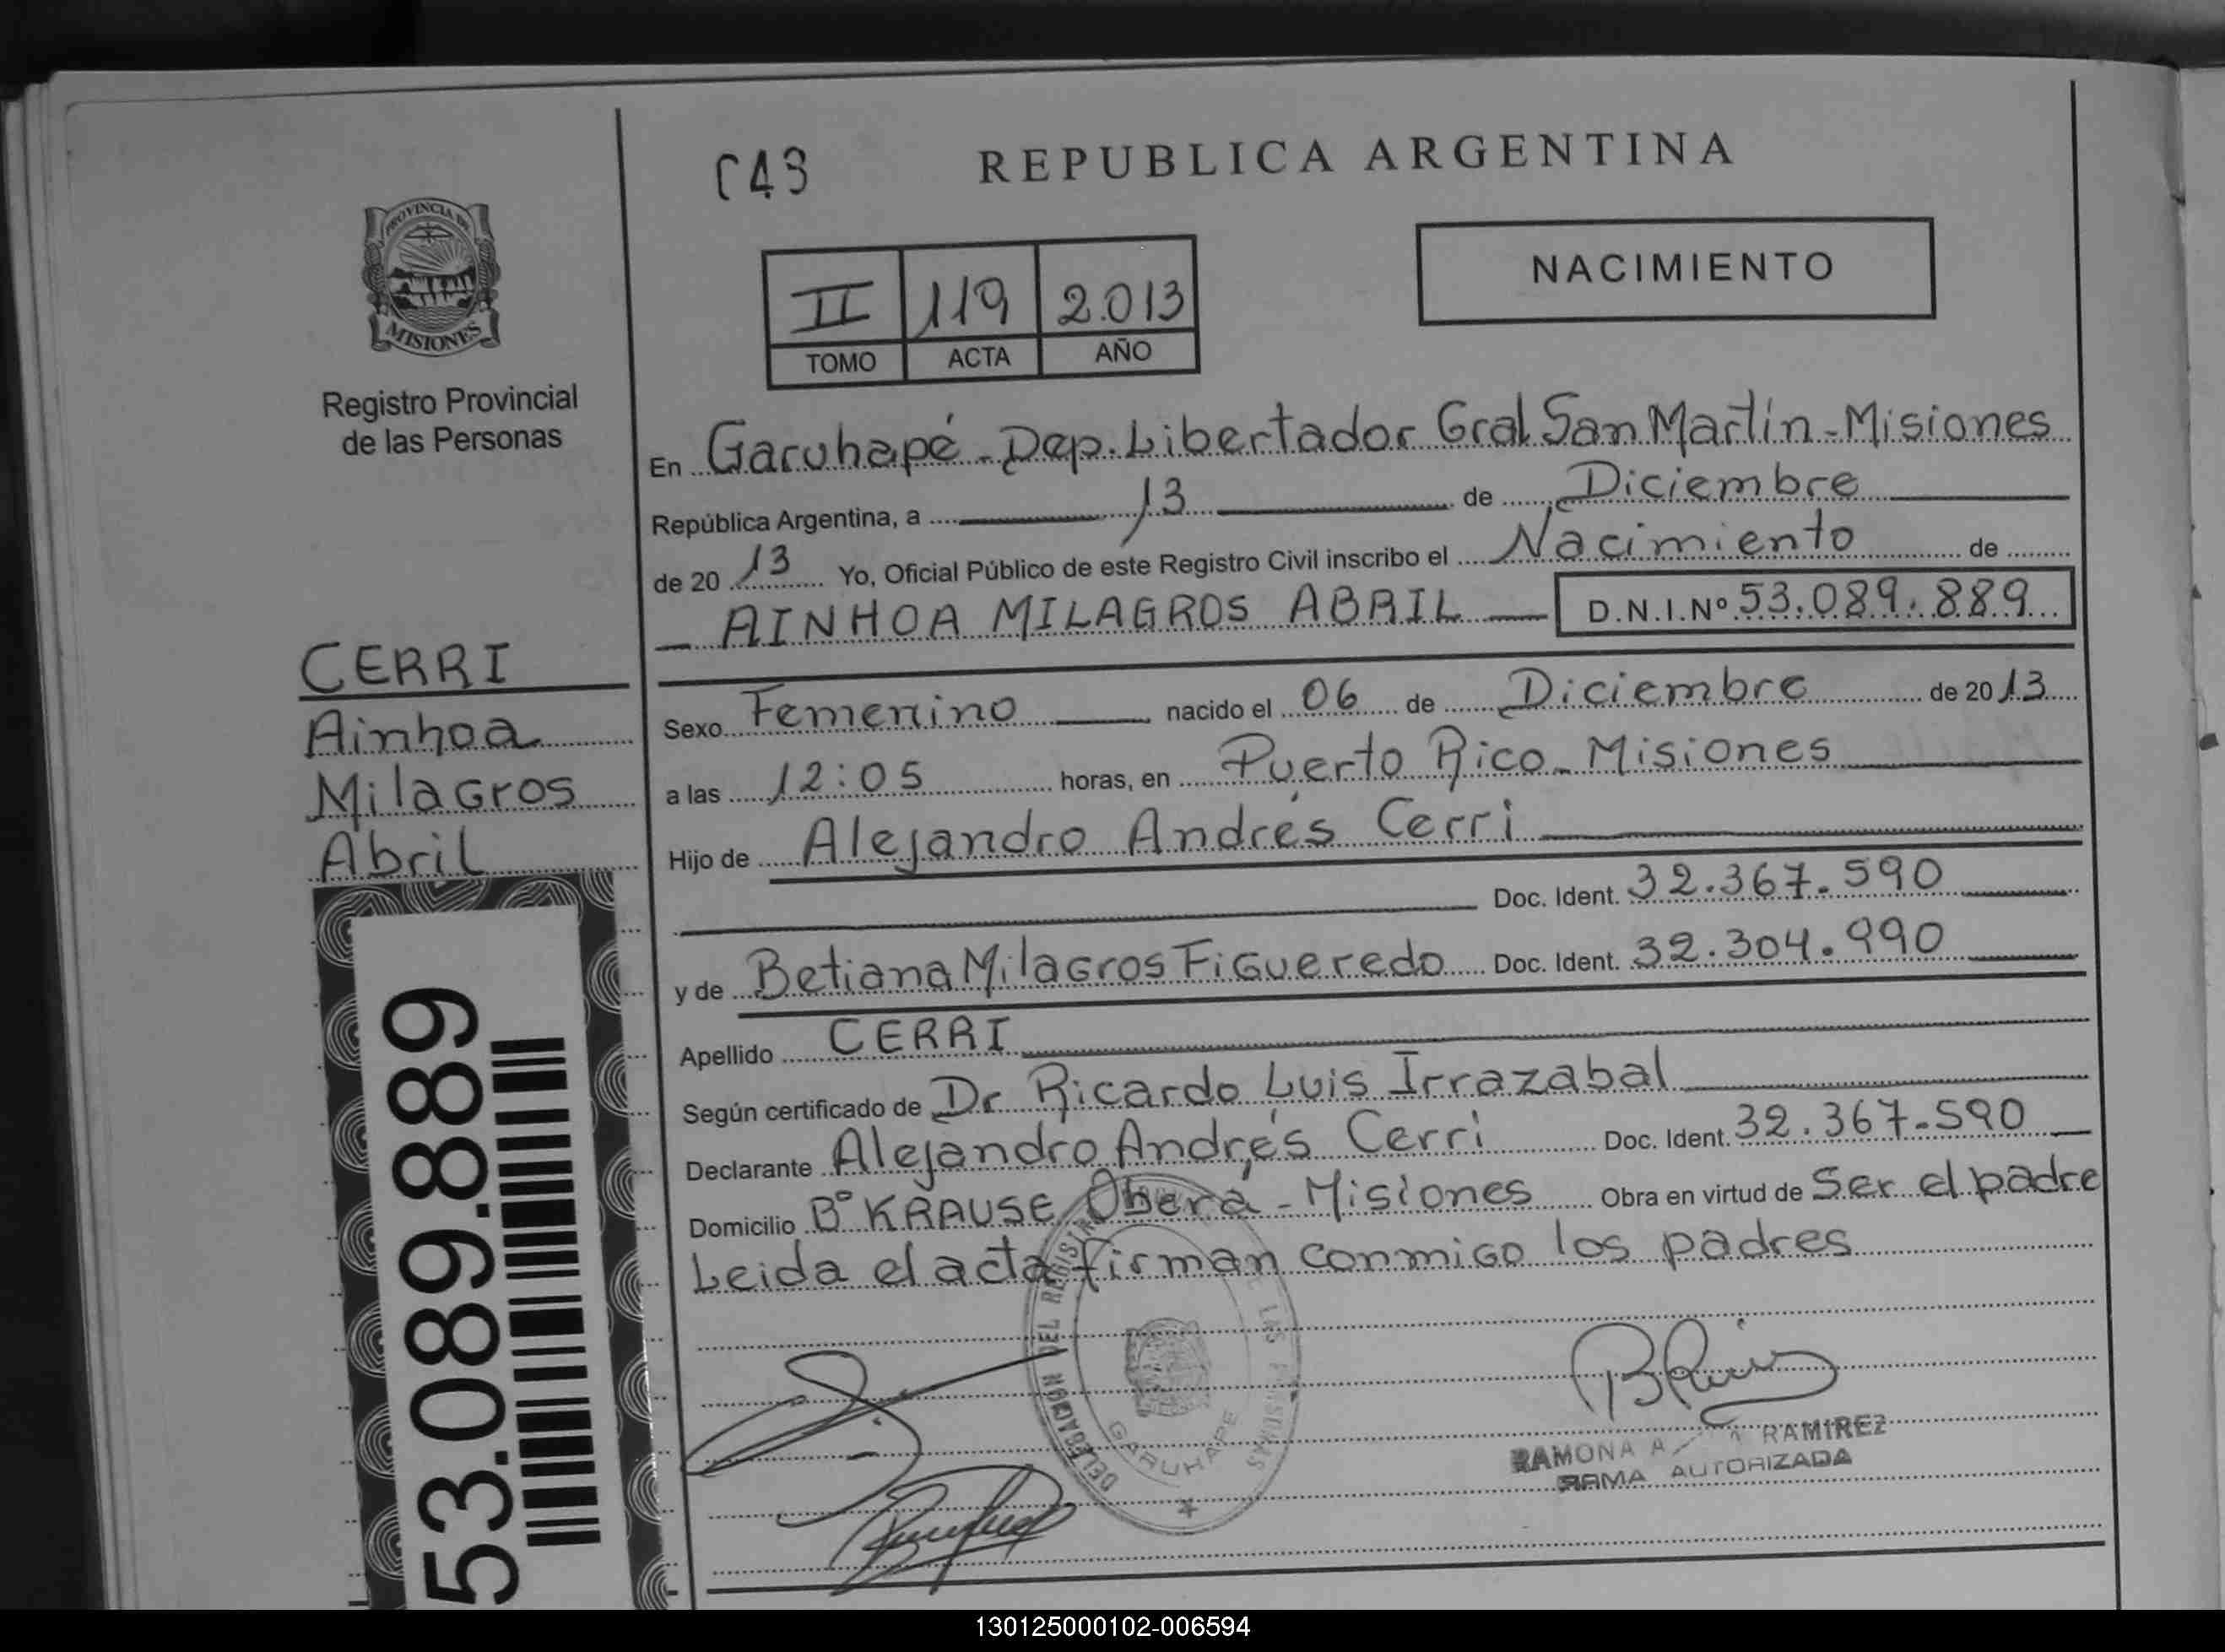 C43
REPUBLICA ARGENTINA
PROVINCIA DE
MISIONES
Registro Provincial
de las Personas
NACIMIENTO
II 119 2.013
TOMO ACTA AÑO
En Garuhapé - Dep. Libertador Gral San Martín - Misiones
República Argentina, a 13 de Diciembre
de 20 13 Yo, Oficial Público de este Registro Civil inscribo el Nacimiento de
AINHOA MILAGROS ABRIL D.N.I.Nº 53.089.889
CERRI
Ainhoa
Milagros
Abril
Sexo Femenino nacido el 06 de Diciembre de 20 13
a las 12:05 horas, en Puerto Rico - Misiones
Hijo de Alejandro Andrés Cerri
Doc. Ident. 32.367.590
y de Betiana Milagros Figueredo Doc. Ident. 32.304.990
Apellido CERRI
Según certificado de Dr Ricardo Luis Irrazabal
Declarante Alejandro Andrés Cerri Doc. Ident. 32.367.590
Domicilio Bº KRAUSE Oberá - Misiones Obra en virtud de Ser el padre
Leida el acta firman conmigo los padres
53.089.889
DELEGACION DEL LAS PERSONAS
GARUHAPE
RAMONA A RAMIREZ
FIRMA AUTORIZADA
130125000102-006594